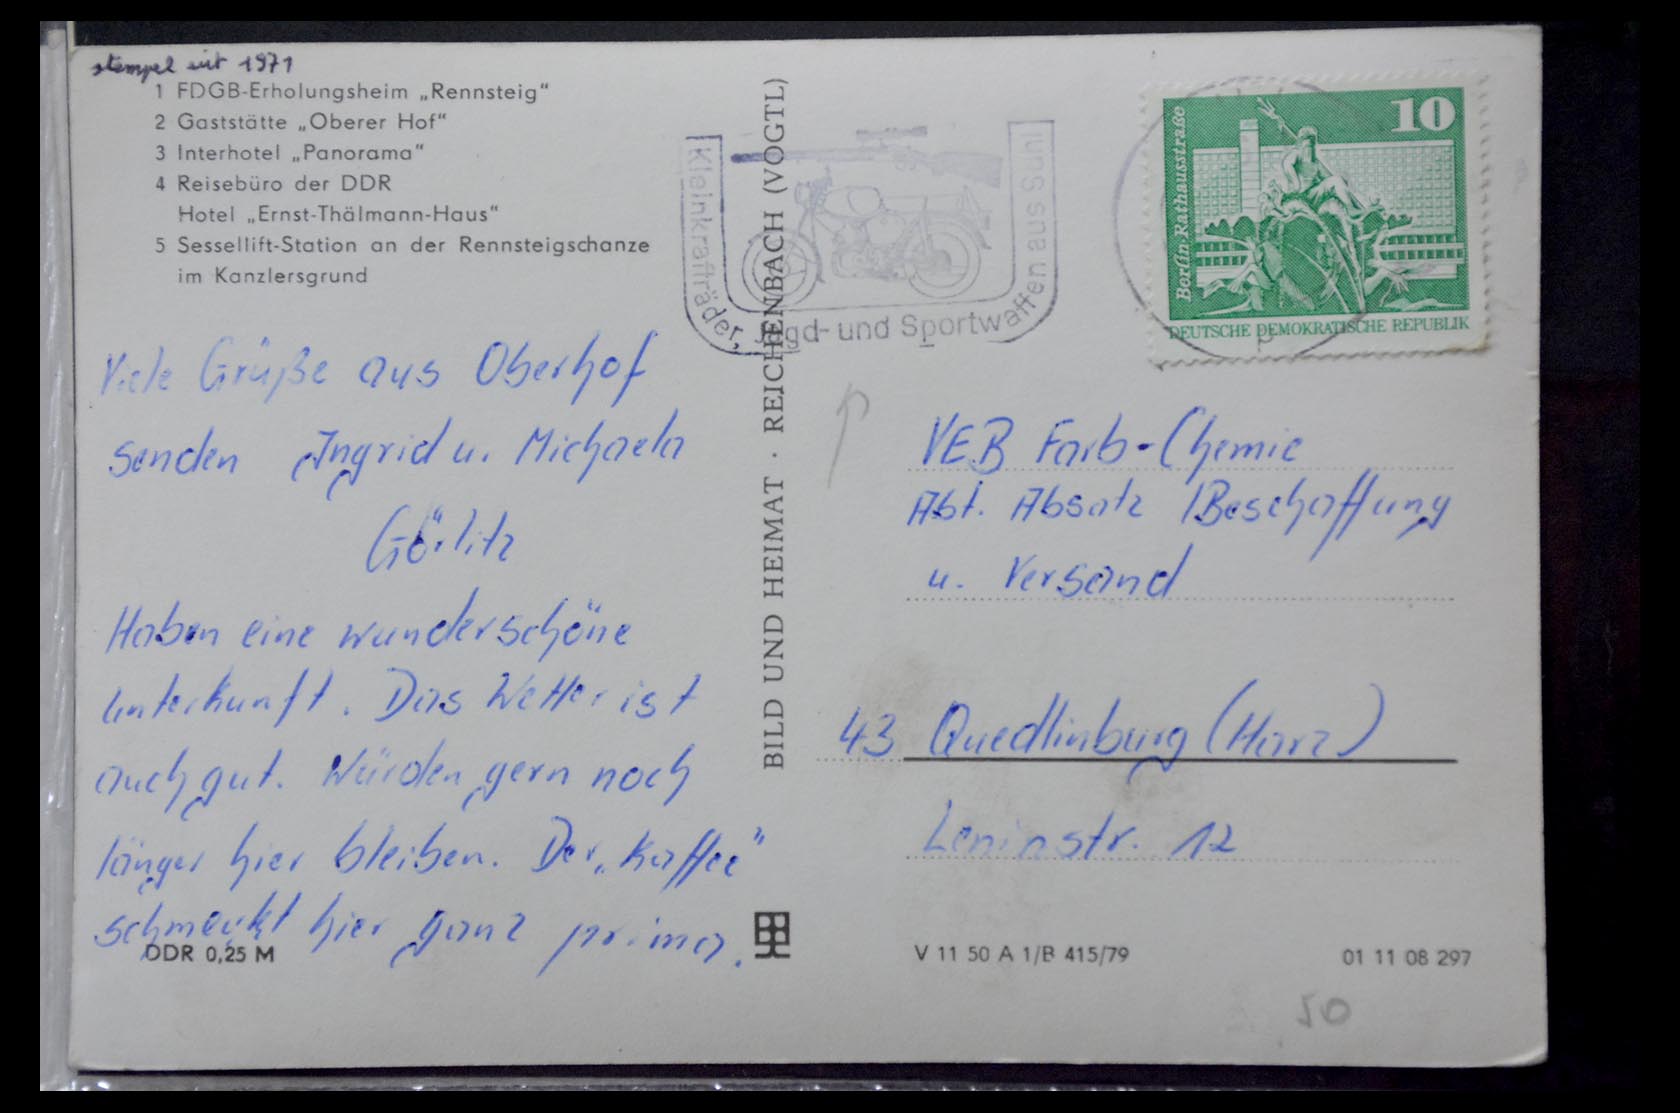 stempel seit 1971
1 FDGB-Erholungsheim „Rennsteig“
2 Gaststätte „Oberer Hof“
3 Interhotel „Panorama“
4 Reisebüro der DDR
Hotel „Ernst-Thälmann-Haus“
5 Sessellift-Station an der Rennsteigschanze
im Kanzlersgrund
Viele Grüße aus Oberhof
senden Ingrid u. Michaela
Görlitz
Haben eine wunderschöne
Unterkunft. Das Wetter ist
auch gut. Würden gern noch
länger hier bleiben. Der „Kaffee“
schmeckt hier ganz prima.
DDR 0,25 M
BILD UND HEIMAT · REICHENBACH (VOGTL)
Kleinkrafträder, Jagd- und Sportwaffen aus Suhl
10
Berlin-Rathausstraße
DEUTSCHE DEMOKRATISCHE REPUBLIK
VEB Farb-Chemie
Abt. Absatz / Beschaffung
u. Versand
43 Quedlinburg (Harz)
Leninstr. 12
V 11 50 A 1/B 415/79
01 11 08 297
50